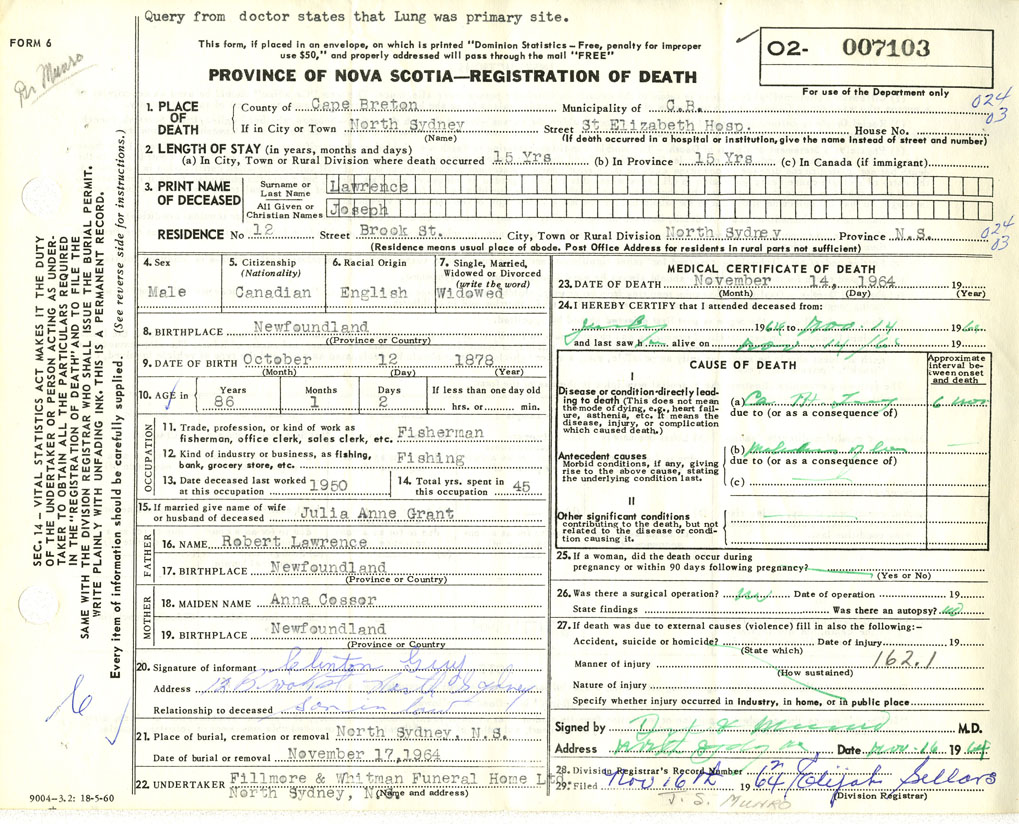 Query from doctor states that Lung was primary site.
FORM 6
Dr Munro
This form, if placed in an envelope, on which is printed "Dominion Statistics – Free, penalty for improper
use $50," and properly addressed will pass through the mail "FREE"
PROVINCE OF NOVA SCOTIA—REGISTRATION OF DEATH
O2- 007103
For use of the Department only
024
03
1. PLACE OF DEATH
County of Cape Breton Municipality of C.B.
If in City or Town North Sydney Street St Elizabeth Hosp. House No.
(Name) (If death occurred in a hospital or institution, give the name instead of street and number)
2. LENGTH OF STAY (in years, months and days)
(a) In City, Town or Rural Division where death occurred 15 Yrs (b) In Province 15 Yrs (c) In Canada (if immigrant)
3. PRINT NAME OF DECEASED
Surname or Last Name Lawrence
All Given or Christian Names Joseph
RESIDENCE No 12 Street Brook St. City, Town or Rural Division North Sydney Province N.S.
024
03
(Residence means usual place of abode. Post Office Address for residents in rural parts not sufficient)
4. Sex
Male
5. Citizenship
(Nationality)
Canadian
6. Racial Origin
English
7. Single, Married,
Widowed or Divorced
(write the word)
Widowed
8. BIRTHPLACE Newfoundland
((Province or Country)
9. DATE OF BIRTH October 12 1878
(Month) (Day) (Year)
10. AGE in
Years Months Days If less than one day old
86 1 2 hrs. or min.
OCCUPATION
11. Trade, profession, or kind of work as
fisherman, office clerk, sales clerk, etc. Fisherman
12. Kind of industry or business, as fishing,
bank, grocery store, etc. Fishing
13. Date deceased last worked
at this occupation 1950
14. Total yrs. spent in
this occupation 45
15. If married give name of wife
or husband of deceased Julia Anne Grant
FATHER
16. NAME Robert Lawrence
17. BIRTHPLACE Newfoundland
(Province or Country)
MOTHER
18. MAIDEN NAME Anna Cossor
19. BIRTHPLACE Newfoundland
(Province or Country
20. Signature of informant Clinton Guy
Address 12 Brook St North Sydney
Relationship to deceased son in law
21. Place of burial, cremation or removal North Sydney, N.S.
Date of burial or removal November 17, 1964
22. UNDERTAKER Fillmore & Whitman Funeral Home Ltd.
North Sydney, N.S.
(Name and address)
MEDICAL CERTIFICATE OF DEATH
23. DATE OF DEATH November 14, 1964 19
(Month) (Day) (Year)
24. I HEREBY CERTIFY that I attended deceased from:
1964 to Nov. 14 19
and last saw him alive on Nov 14/ 19
CAUSE OF DEATH
Approximate
interval be-
tween onset
and death
I
Disease or condition directly lead-
ing to death (This does not mean
the mode of dying, e.g., heart fail-
ure, asthenia, etc. It means the
disease, injury, or complication
which caused death.)
(a) Ca. 6 mos
due to (or as a consequence of)
Antecedent causes
Morbid conditions, if any, giving
rise to the above cause, stating
the underlying condition last.
(b)
due to (or as a consequence of)
(c)
II
Other significant conditions
contributing to the death, but not
related to the disease or condi-
tion causing it.
25. If a woman, did the death occur during
pregnancy or within 90 days following pregnancy?
(Yes or No)
26. Was there a surgical operation? no Date of operation 19
State findings Was there an autopsy? no
27. If death was due to external causes (violence) fill in also the following:-
Accident, suicide or homicide? Date of injury 19
(State which)
Manner of injury 162.1
(How sustained)
Nature of injury
Specify whether injury occurred in industry, in home, or in public place
Signed by Munro M.D.
Address North Sydney Date Nov. 16 1964
28. Division Registrar's Record Number
29. Filed Nov 16th 1964 Elijah Sellars
(Division Registrar)
J. S. MUNRO
SEC. 14 – VITAL STATISTICS ACT MAKES IT THE DUTY
OF THE UNDERTAKER OR PERSON ACTING AS UNDER-
TAKER TO OBTAIN ALL THE PARTICULARS REQUIRED
IN THE "REGISTRATION OF DEATH" AND TO FILE THE
SAME WITH THE DIVISION REGISTRAR WHO SHALL ISSUE THE BURIAL PERMIT.
WRITE PLAINLY WITH UNFADING INK. THIS IS A PERMANENT RECORD.
Every item of information should be carefully supplied. (See reverse side for instructions.)
6
9004–3.2: 18-5-60